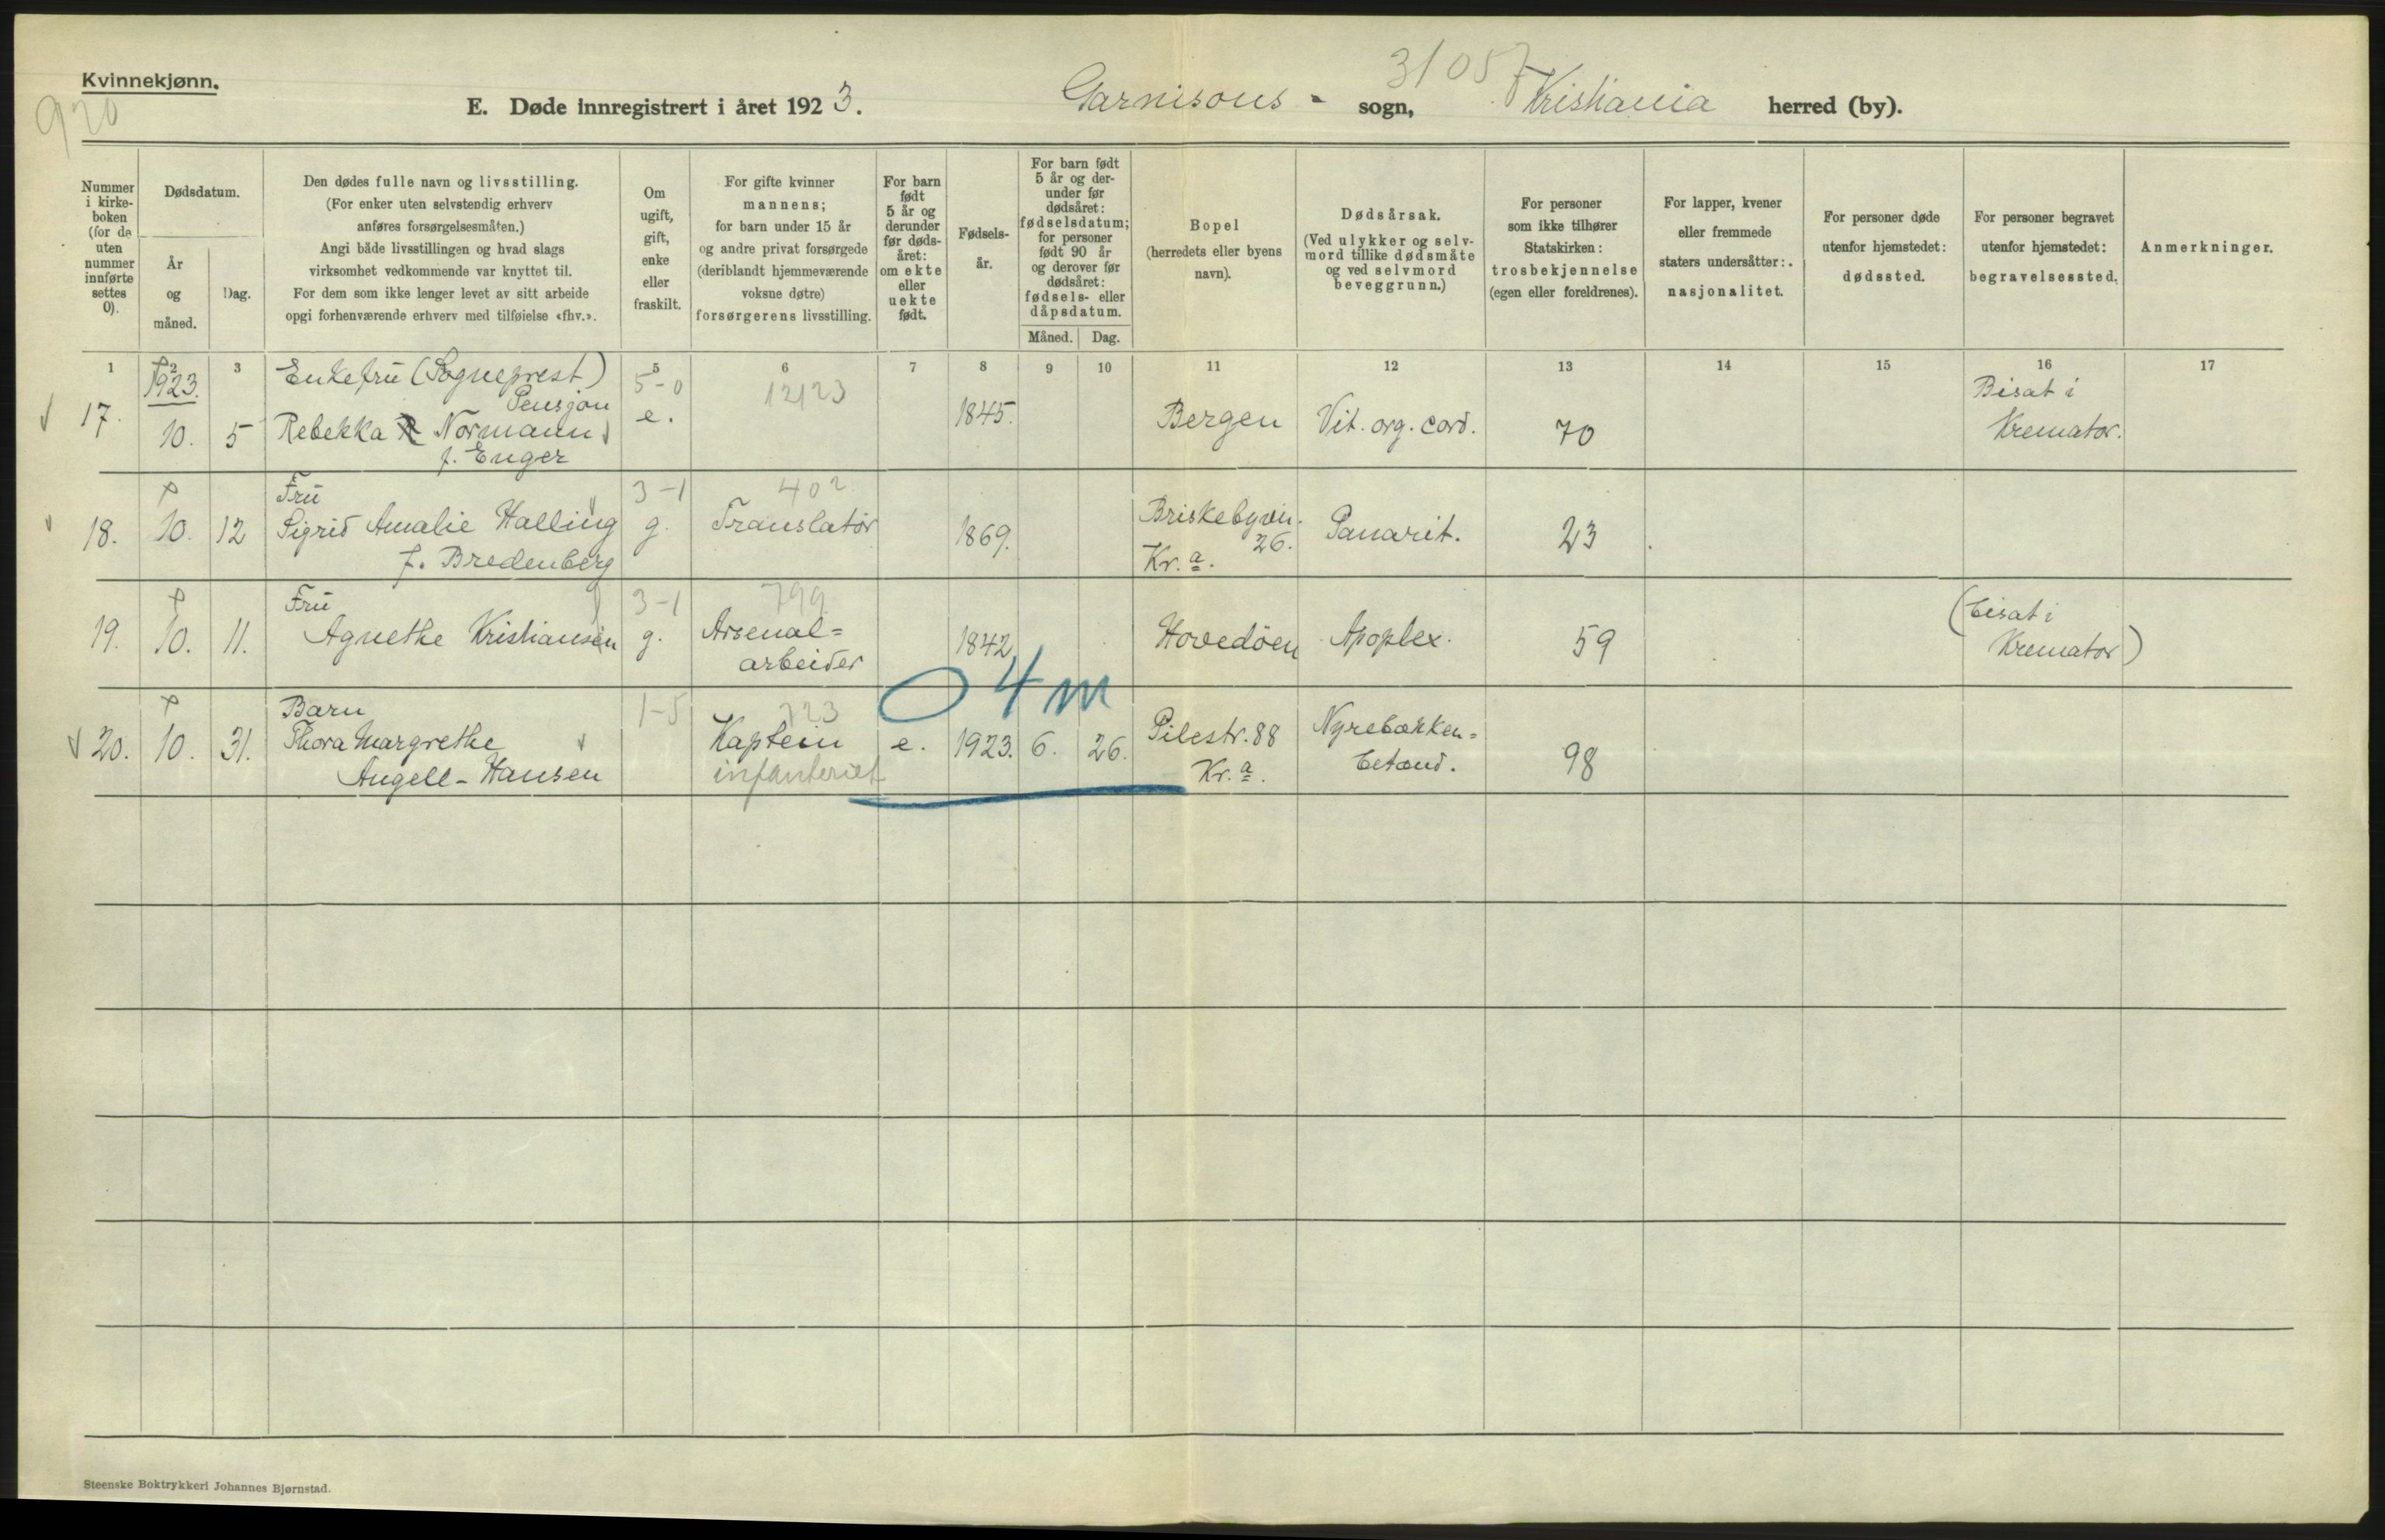 Kvinnekjønn.
920
31057
E. Døde innregistrert i året 1923. Garnisons - sogn, Kristiania herred (by).
Nummer i kirke-boken (for de uten nummer innførte settes 0).
Dødsdatum.
År og måned.
Dag.
Den dødes fulle navn og livsstilling.
(For enker uten selvstendig erhverv
anføres forsørgelsesmåten.)
Angi både livsstillingen og hvad slags
virksomhet vedkommende var knyttet til.
For dem som ikke lenger levet av sitt arbeide
opgi forhenværende erhverv med tilføielse «fhv.».
Om ugift, gift, enke eller fraskilt.
For gifte kvinner
mannens;
for barn under 15 år
og andre privat forsørgede
(deriblandt hjemmeværende
voksne døtre)
forsørgerens livsstilling.
For barn født 5 år og derunder før døds-året: om ekte eller uekte født.
Fødsels-år.
For barn født 5 år og der-under før dødsåret: fødselsdatum; for personer født 90 år og derover før dødsåret: fødsels- eller dåpsdatum.
Måned. Dag.
Bopel
(herredets eller byens
navn).
Dødsårsak.
(Ved ulykker og selv-
mord tillike dødsmåte
og ved selvmord
beveggrunn.)
For personer
som ikke tilhører
Statskirken:
trosbekjennelse
(egen eller foreldrenes).
For lapper, kvener
eller fremmede
staters undersåtter:
nasjonalitet.
For personer døde
utenfor hjemstedet:
dødssted.
For personer begravet
utenfor hjemstedet:
begravelsessted.
Anmerkninger.
1 2 3 5 6 7 8 9 10 11 12 13 14 15 16 17
17. 1923. 10. 5
Enkefru (Sogneprest)
Pensjon
Rebekka Normann
f. Enger
5-0
e.
12123
1845.
Bergen
Vit. org. cord.
70
Bisat i
Kremator.
18. 10. 12
Fru
Sigrid Amalie Halling
f. Bredenberg
3-1
g.
402
Translatør
1869.
Briskebyvn.
26.
Kr.a.
Panarit.
23
19. 10. 11.
Fru
Agnethe Kristiansen
3-1
g.
799
Arsenal=
arbeider
1842
Hovedøen
Apoplex.
59
(bisat i
Kremator)
04m
20. 10. 31.
Barn
Thora Margrethe
Angell-Hansen
1-5
723
Kaptein
infanteriet
e. 1923. 6. 26.
Pilestr. 88
Kr.a.
Nyrebækken=
betænd.
98
Steenske Boktrykkeri Johannes Bjørnstad.